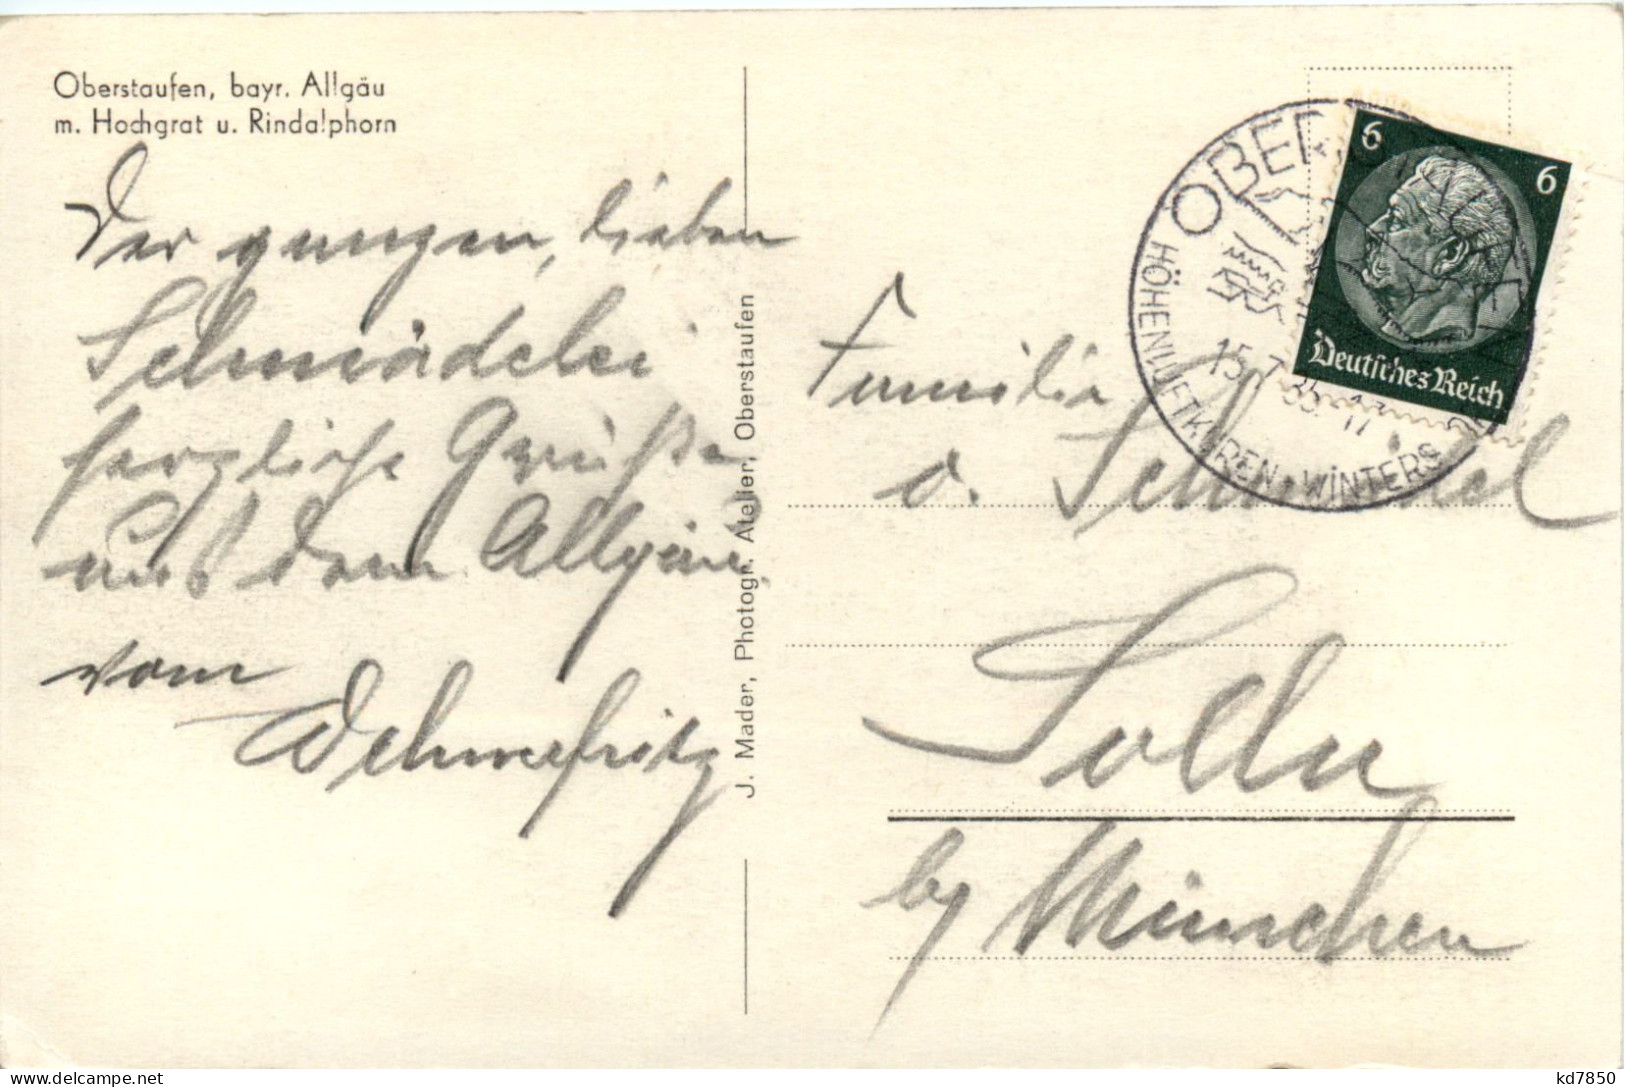 Oberstaufen, bayr. Allgäu
m. Hochgrat u. Rindalphorn
Der ganzen, lieben
herzliche Grüße
aus dem Allgäu,
vom
J. Mader, Photogr. Atelier, Oberstaufen
HÖHENLUFTKUREN · WINTERS
15.7.35.-17
6
6
Deutsches Reich
Familie
Solln
by München
kd7850